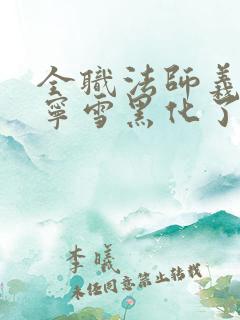 全職法師義
寧雪黑化了
李曦
未经同意禁止转载